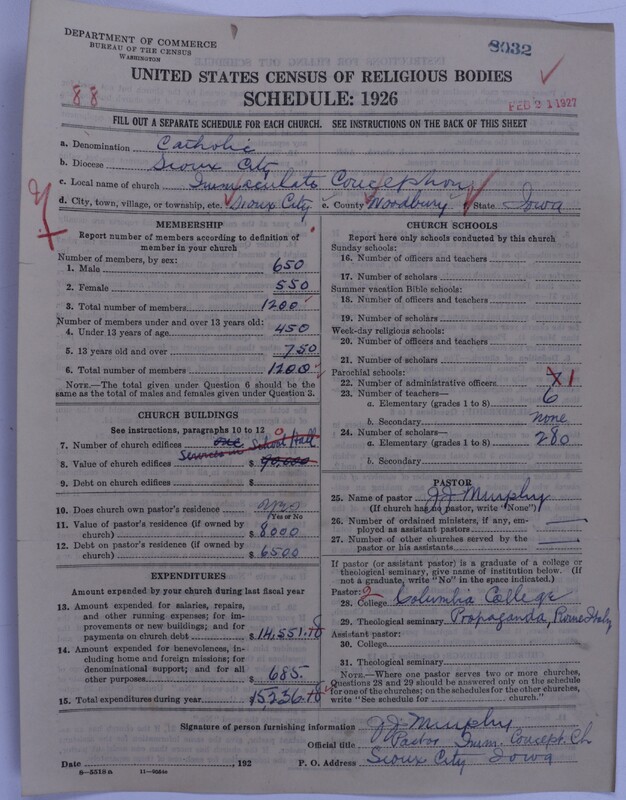 DEPARTMENT OF COMMERCE
BUREAU OF THE CENSUS
WASHINGTON
8032
UNITED STATES CENSUS OF RELIGIOUS BODIES
SCHEDULE: 1926
88
FEB 21 1927
FILL OUT A SEPARATE SCHEDULE FOR EACH CHURCH. SEE INSTRUCTIONS ON THE BACK OF THIS SHEET
a. Denomination Catholic
b. Diocese Sioux City
c. Local name of church Immaculate Conception
d. City, town, village, or township, etc. Sioux City e. County Woodbury State Iowa
MEMBERSHIP
Report number of members according to definition of
member in your church
Number of members, by sex:
1. Male 650
2. Female 550
3. Total number of members 1200
Number of members under and over 13 years old:
4. Under 13 years of age 450
5. 13 years old and over 750
6. Total number of members 1200
NOTE.—The total given under Question 6 should be
the same as the total of males and females given under Question 3.
CHURCH BUILDINGS
See instructions, paragraphs 10 to 12
7. Number of church edifices one 0
Services in School Hall
8. Value of church edifices $ 90,000
9. Debt on church edifices $
10. Does church own pastor's residence yes
Yes or No
11. Value of pastor's residence (if owned by
church) $ 8000
12. Debt on pastor's residence (if owned by
church) $ 6500
EXPENDITURES
Amount expended by your church during last fiscal year
13. Amount expended for salaries, repairs,
and other running expenses; for im-
provements or new buildings; and for
payments on church debt $ 14,551.18
14. Amount expended for benevolences, in-
cluding home and foreign missions; for
denominational support; and for all
other purposes $ 685.-
15. Total expenditures during year $ 15236.18
CHURCH SCHOOLS
Report here only schools conducted by this church
Sunday schools:
16. Number of officers and teachers
17. Number of scholars
Summer vacation Bible schools:
18. Number of officers and teachers
19. Number of scholars
Week-day religious schools:
20. Number of officers and teachers
21. Number of scholars
Parochial schools:
22. Number of administrative officers 1
23. Number of teachers—
a. Elementary (grades 1 to 8) 6
b. Secondary none
24. Number of scholars—
a. Elementary (grades 1 to 8) 280
b. Secondary
PASTOR
25. Name of pastor J J Murphy
(If church has no pastor, write "None")
26. Number of ordained ministers, if any, em-
ployed as assistant pastors
27. Number of other churches served by the
pastor or his assistants
If pastor (or assistant pastor) is a graduate of a college or
theological seminary, give name of institution below. (If
not a graduate, write "No" in the space indicated.)
Pastor: 2
28. College Columbia College
29. Theological seminary Propaganda, Rome Italy
Assistant pastor:
30. College
31. Theological seminary
NOTE.—Where one pastor serves two or more churches,
Questions 28 and 29 should be answered only on the schedule
for one of the churches; on the schedules for the other churches,
write "See schedule for church."
Signature of person furnishing information J J Murphy
Official title Pastor Imm. Concept. Ch
Date , 192 P. O. Address Sioux City Iowa
8—5518a